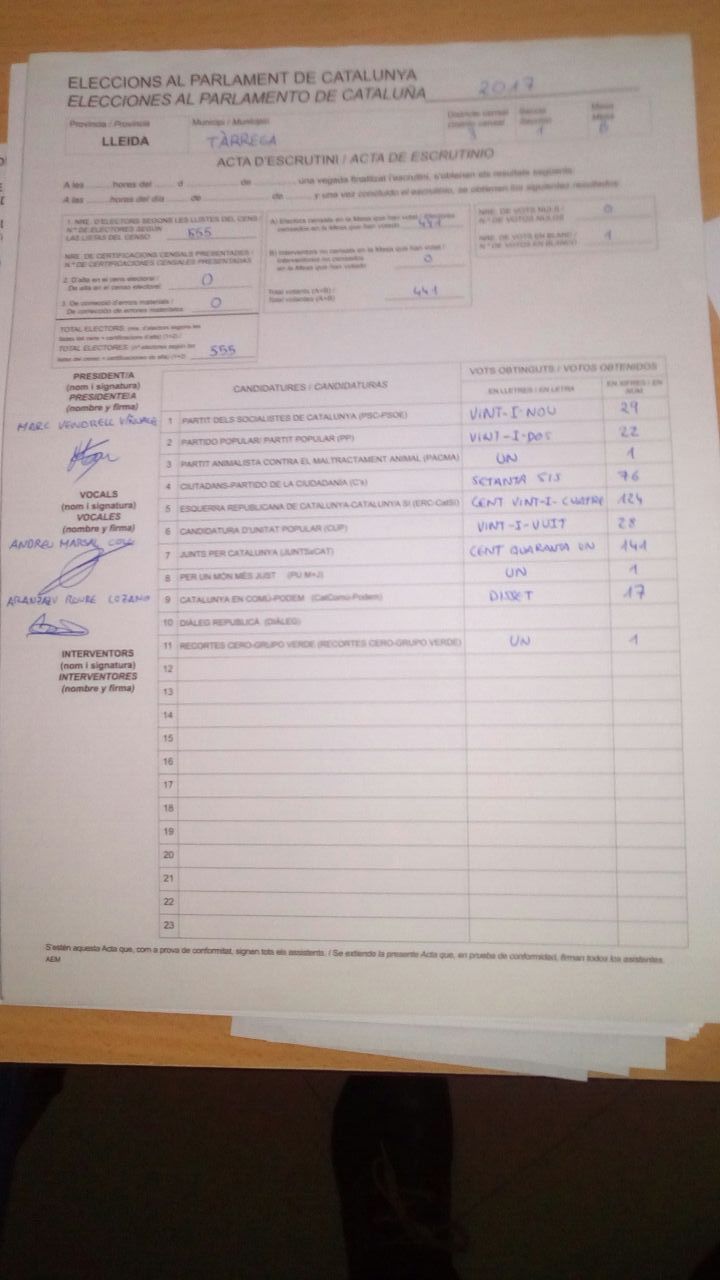 ELECCIONS AL PARLAMENT DE CATALUNYA
ELECCIONES AL PARLAMENTO DE CATALUÑA 2017
Província / Provincia Municipi / Municipio Districte censal Distrito censal Secció Sección Mesa Mesa
LLEIDA TÀRREGA 1
ACTA D'ESCRUTINI / ACTA DE ESCRUTINIO
A les ........ hores del ........ d ........ de ........, una vegada finalitzat l'escrutini, s'obtenen els resultats següents:
A las ........ horas del día ........ de ........ de ........ y una vez concluido el escrutinio, se obtienen los siguientes resultados:
1. NRE. D'ELECTORS SEGONS LES LLISTES DEL CENS
N.º DE ELECTORES SEGÚN
LAS LISTAS DEL CENSO 555
NRE. DE CERTIFICACIONS CENSALS PRESENTADES /
N.º DE CERTIFICACIONES CENSALES PRESENTADAS
2. D'alta en el cens electoral /
De alta en el censo electoral 0
3. De correcció d'errors materials /
De corrección de errores materiales 0
TOTAL ELECTORS (nre. d'electors segons les
llistes del cens + certificacions d'alta) (1+2) /
TOTAL ELECTORES (nº electores según las
listas del censo + certificaciones de alta) (1+2) 555
A) Electors censats en la Mesa que han votat / Electores
censados en la Mesa que han votado 441
B) Interventors no censats en la Mesa que han votat /
Interventores no censados
en la Mesa que han votado 0
Total votants (A+B) /
Total votantes (A+B) 441
NRE. DE VOTS NULS /
N.º DE VOTOS NULOS 0
NRE. DE VOTS EN BLANC /
N.º DE VOTOS EN BLANCO 1
PRESIDENT/A
(nom i signatura)
PRESIDENTE/A
(nombre y firma)
MARC VENDRELL
VOCALS
(nom i signatura)
VOCALES
(nombre y firma)
ANDREU MARSAL
ARANZAZU ROURE LOZANO
INTERVENTORS
(nom i signatura)
INTERVENTORES
(nombre y firma)
CANDIDATURES / CANDIDATURAS VOTS OBTINGUTS / VOTOS OBTENIDOS
EN LLETRES / EN LETRA EN XIFRES / EN NÚM.
1 PARTIT DELS SOCIALISTES DE CATALUNYA (PSC-PSOE) VINT-I-NOU 29
2 PARTIDO POPULAR/ PARTIT POPULAR (PP) VINT-I-DOS 22
3 PARTIT ANIMALISTA CONTRA EL MALTRACTAMENT ANIMAL (PACMA) UN 1
4 CIUTADANS-PARTIDO DE LA CIUDADANÍA (C's) SETANTA SIS 76
5 ESQUERRA REPUBLICANA DE CATALUNYA-CATALUNYA SÍ (ERC-CatSí) CENT VINT-I-CUATRE 124
6 CANDIDATURA D'UNITAT POPULAR (CUP) VINT-I-VUIT 28
7 JUNTS PER CATALUNYA (JUNTSxCAT) CENT QUARANTA UN 141
8 PER UN MÓN MÉS JUST (PU M+J) UN 1
9 CATALUNYA EN COMÚ-PODEM (CatComú-Podem) DISSET 17
10 DIÀLEG REPUBLICÀ (DIÀLEG)
11 RECORTES CERO-GRUPO VERDE (RECORTES CERO-GRUPO VERDE) UN 1
12
13
14
15
16
17
18
19
20
21
22
23
S'estén aquesta Acta que, com a prova de conformitat, signen tots els assistents. / Se extiende la presente Acta que, en prueba de conformidad, firman todos los asistentes.
AEM